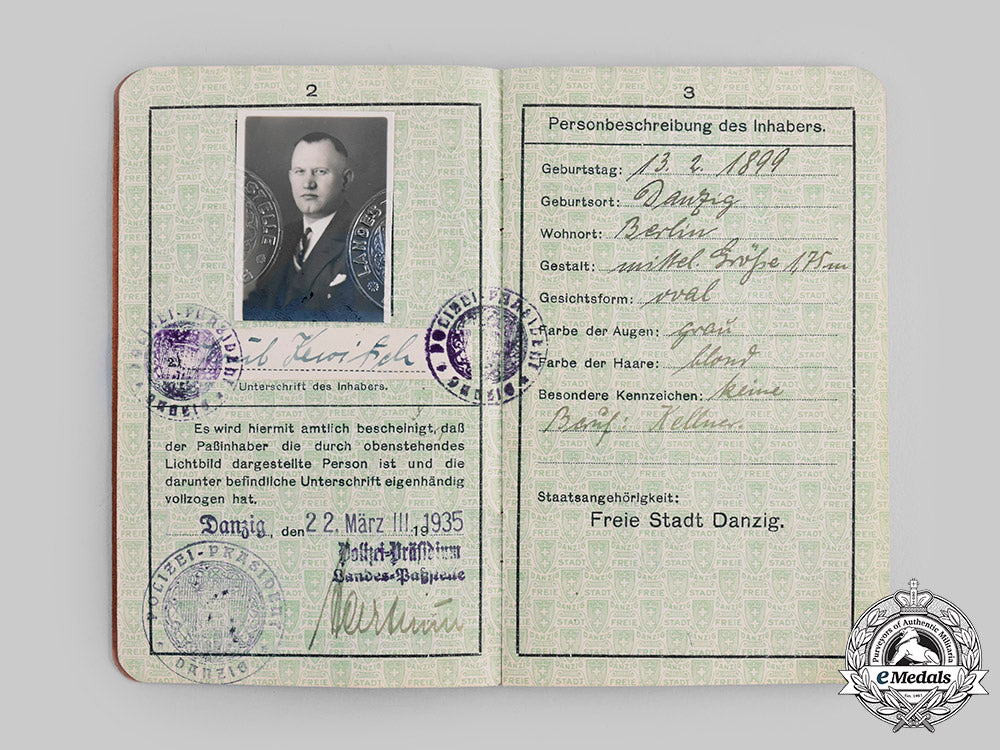 2
STELLE
LANDES
POLIZEI-PRÄSIDENT
DANZIG
Kewitsch
Unterschrift des Inhabers.
Es wird hiermit amtlich bescheinigt, daß
der Paßinhaber die durch obenstehendes
Lichtbild dargestellte Person ist und die
darunter befindliche Unterschrift eigenhändig
vollzogen hat.
Danzig, den 22. März III. 19 1935
Polizei-Präsidium
Landes-Paßstelle
POLIZEI-PRÄSIDENT
DANZIG
3
Personbeschreibung des Inhabers.
Geburtstag: 13. 2. 1899
Geburtsort: Danzig
Wohnort: Berlin
Gestalt: mittel. Größe 1,75m
Gesichtsform: oval
Farbe der Augen: grau
Farbe der Haare: blond
Besondere Kennzeichen: keine
Beruf: Kellner.
Staatsangehörigkeit:
Freie Stadt Danzig.
Purveyors of Authentic Militaria
eMedals